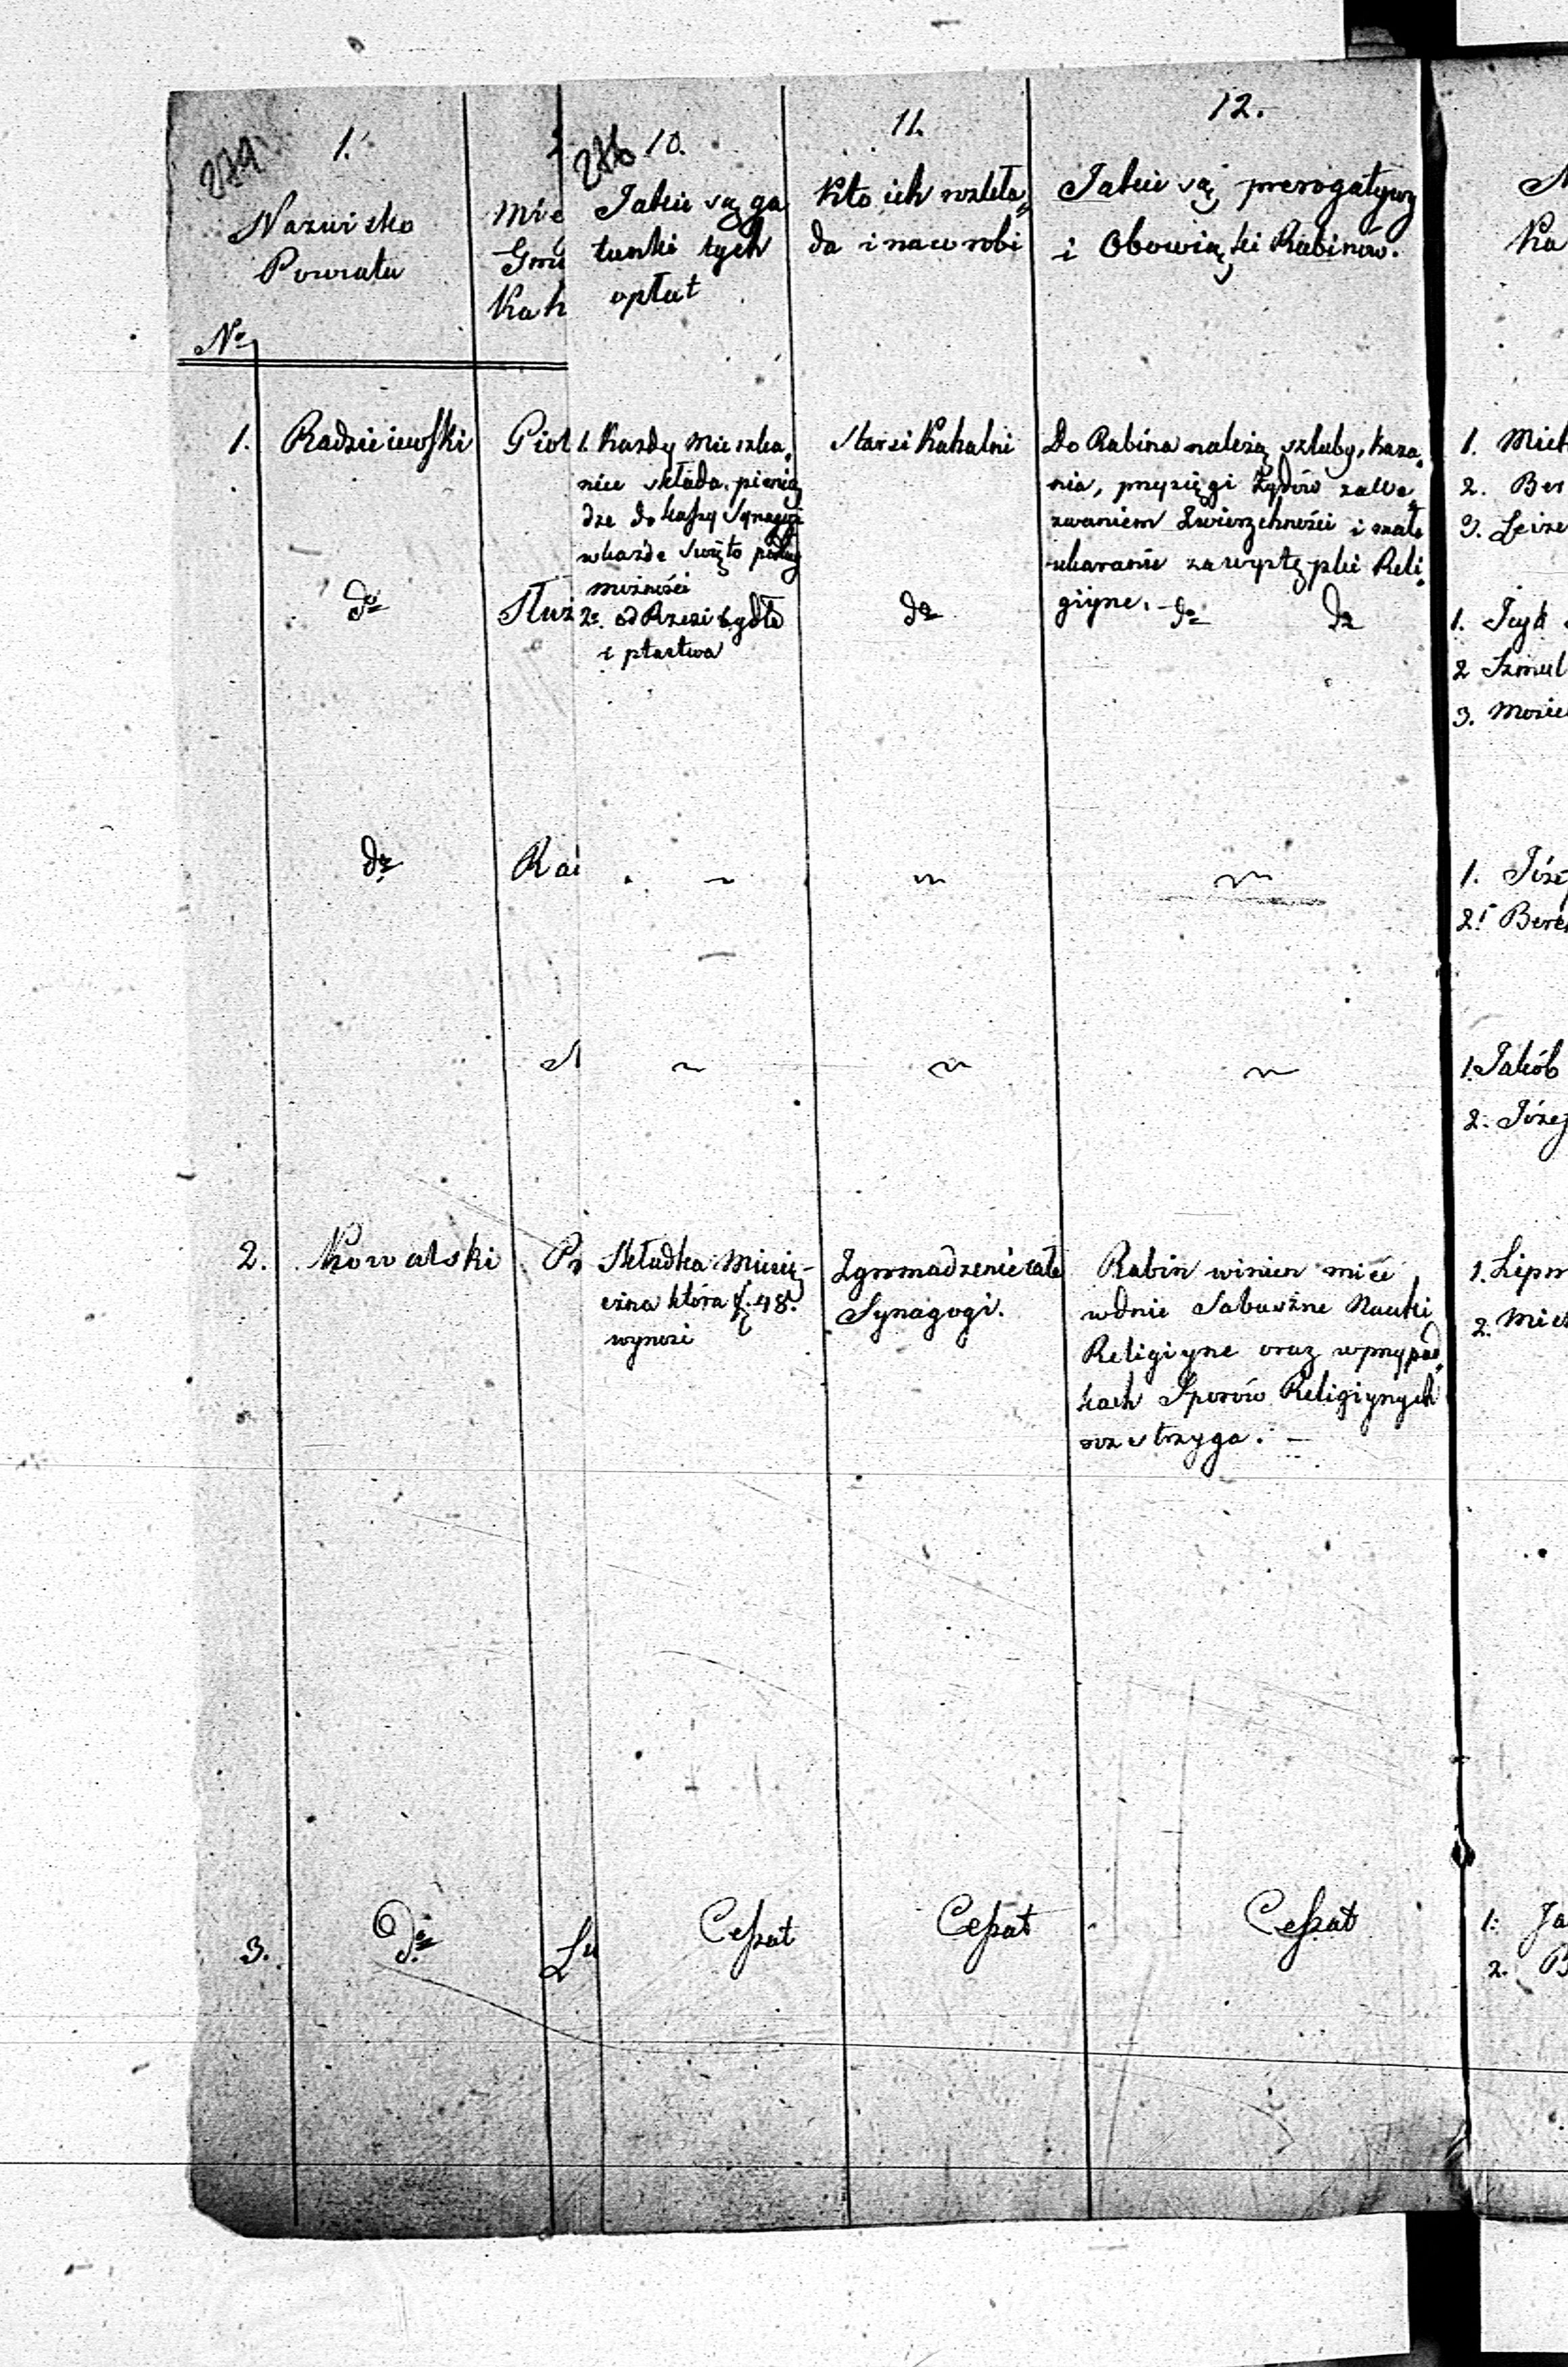 279
1.
Nazwisko
Powiatu
No
Mie
Gmi
Kah
286 10.
Jakie są ga
tunki tych
opłat
11.
Kto ich rozkła„
da i naco robi
12.
Jakie są prerogatywy
i Obowiązki Rabinów.
Ka
1. Radzieiewski
Piot
1. Każdy Mieszka„
niec składa pienią
dze do kassy Synagogi
wkażde Swięto podług
możności
Starsi Kahalni
Do Rabina należą szluby, kaza„
nia, przysięgi Żydów za We„
zwaniem Zwierzchności i małe
ukaranie za występki Reli„
giyne.
1. Mich
2. Ber
3. Leize
do
Służ
2o. od Rzezi bydła
i ptastwa
do
do do
1. Icyk
2 Szmul
3. Mosie
do
Rad
1. Józef
2. Berek
1. Jakób
2. Józef
2. Kowalski
Pr
Składka Miesię„
czna która f. 48.
wynosi
Zgromadzenie całe
Synagogi.
Rabin winien mieć
wdnie Sabaszne Nauki
Religiyne oraz wprzypad„
kach Sporów Religiynych
rozstrzyga. —
1. Lipm
2. Mich
3. do
Lu
Cessat
Cessat
Cessat
1. Ja
2. B